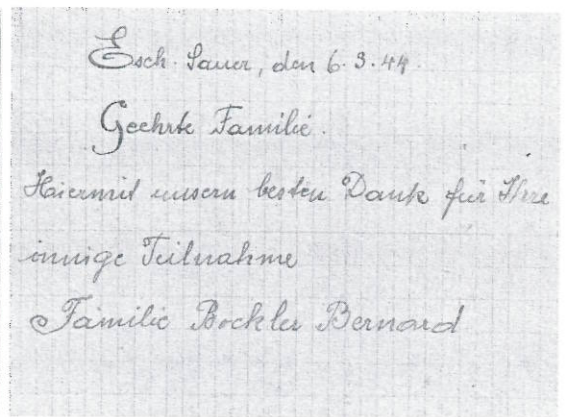 Esch-Sauer, den 6.3.44.
Geehrte Familie.
Haiermit unsern besten Dank für Ihre
innige Teilnahme
Familie Bockler Bernard